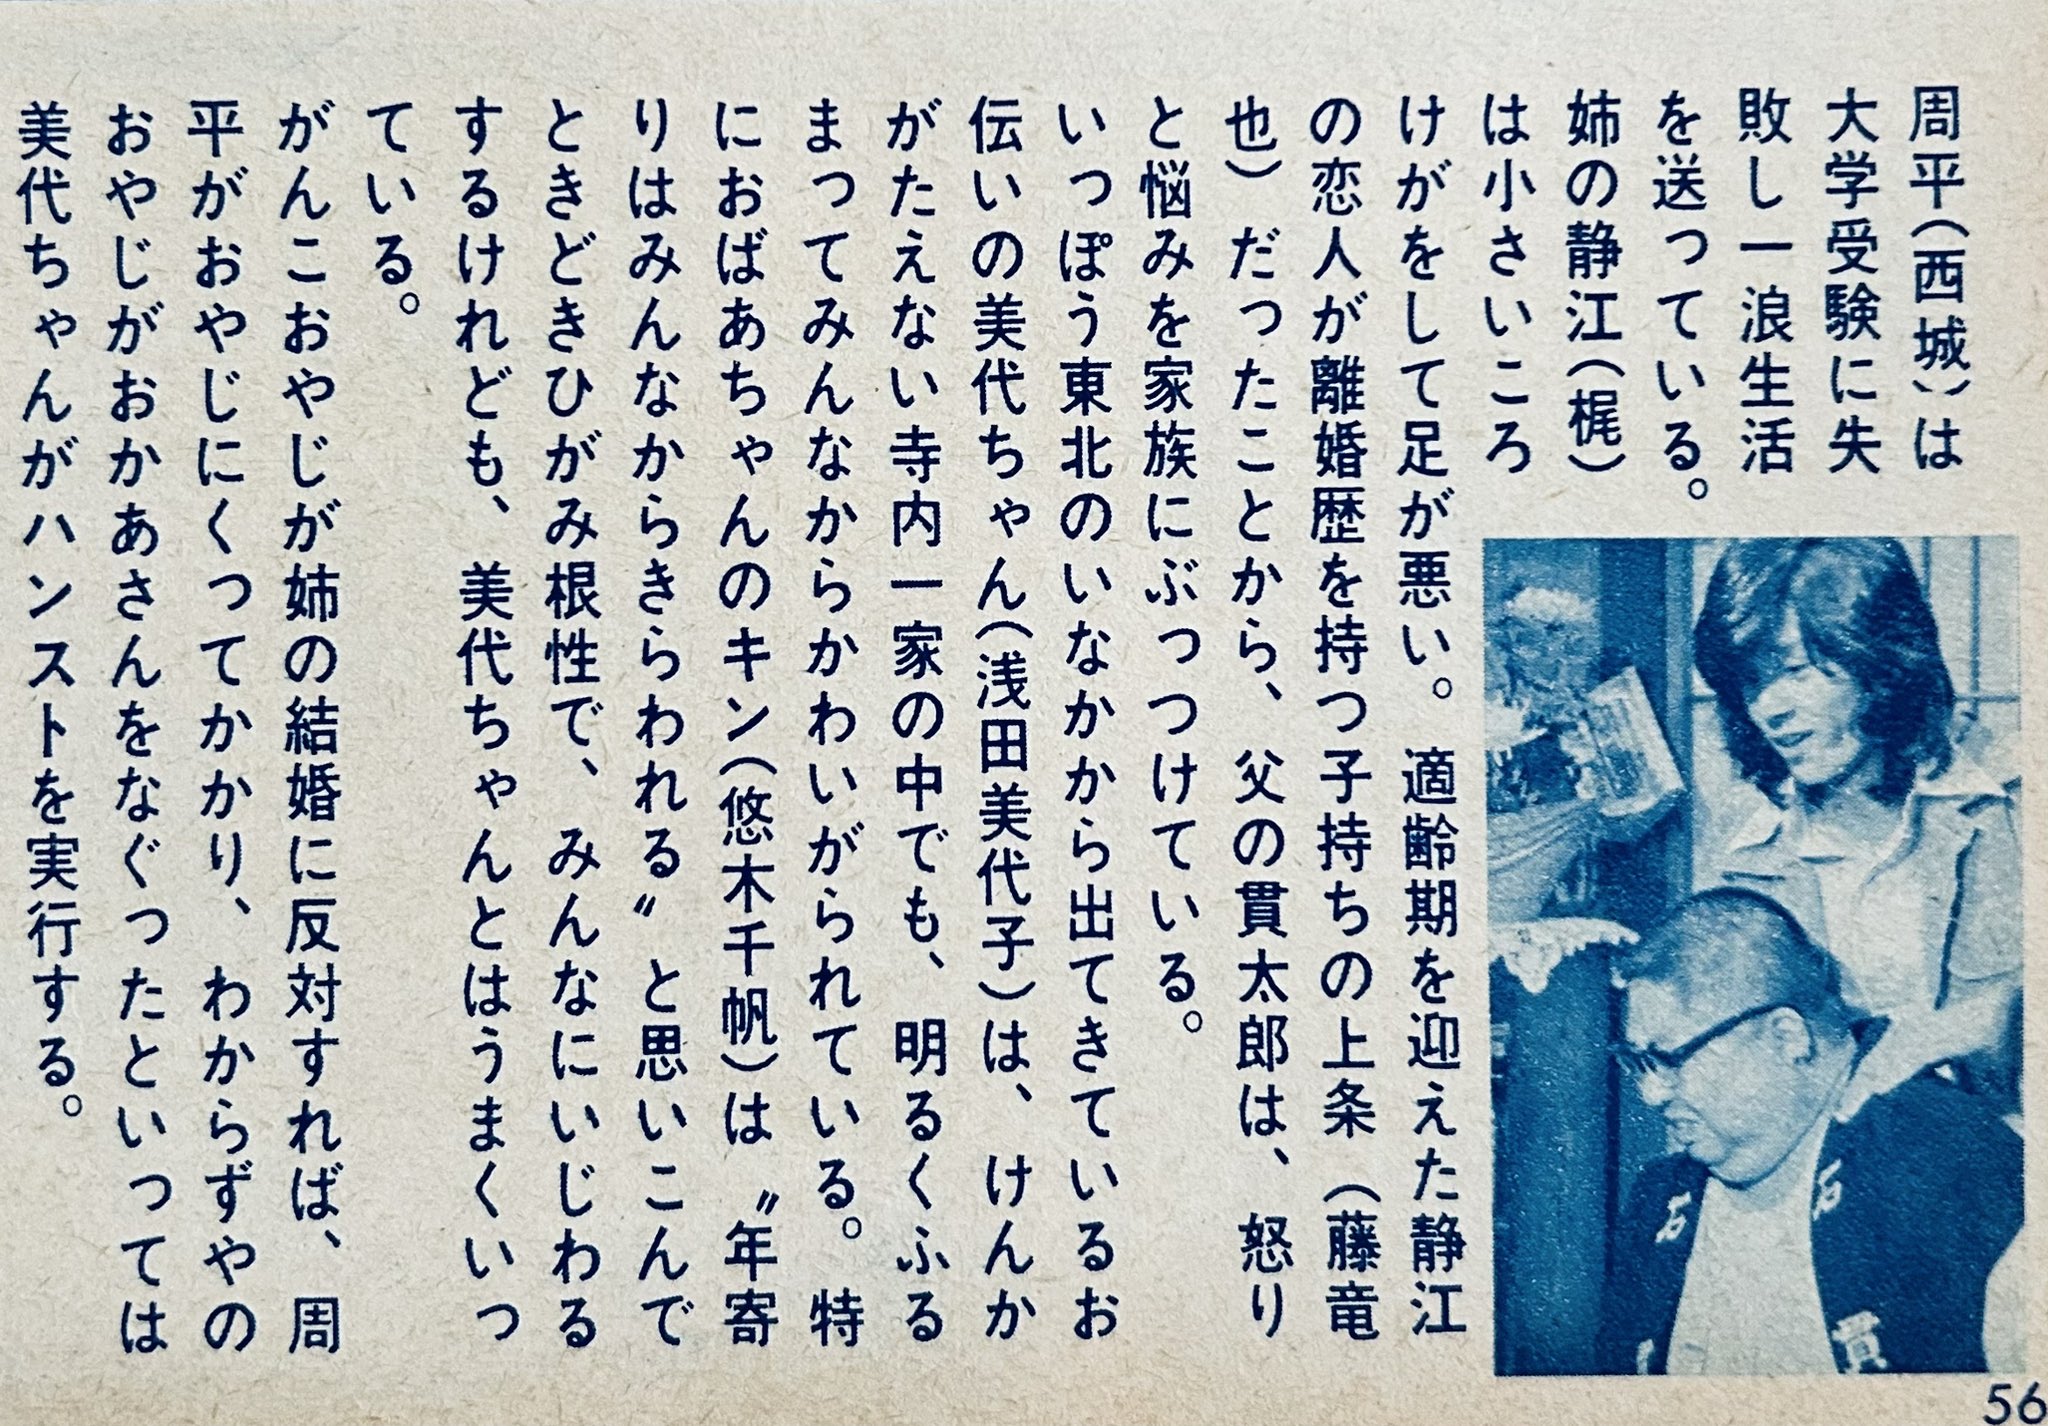 周平(西城)は
大学受験に失
敗し一浪生活
を送っている。
姉の静江(梶)
は小さいころ
けがをして足が悪い。適齢期を迎えた静江
の恋人が離婚歴を持つ子持ちの上条(藤竜
也)だったことから、父の貫太郎は、怒り
と悩みを家族にぶっつけている。
いっぽう東北のいなかから出てきているお
伝いの美代ちゃん(浅田美代子)は、けんか
がたえない寺内一家の中でも、明るくふる
まってみんなからかわいがられている。特
におばあちゃんのキン(悠木千帆)は〝年寄
りはみんなからきらわれる〟と思いこんで
ときどきひがみ根性で、みんなにいじわる
するけれども、美代ちゃんとはうまくいっ
ている。
がんこおやじが姉の結婚に反対すれば、周
平がおやじにくってかかり、わからずやの
おやじがおかあさんをなぐったといっては
美代ちゃんがハンストを実行する。
石
石
貫
56